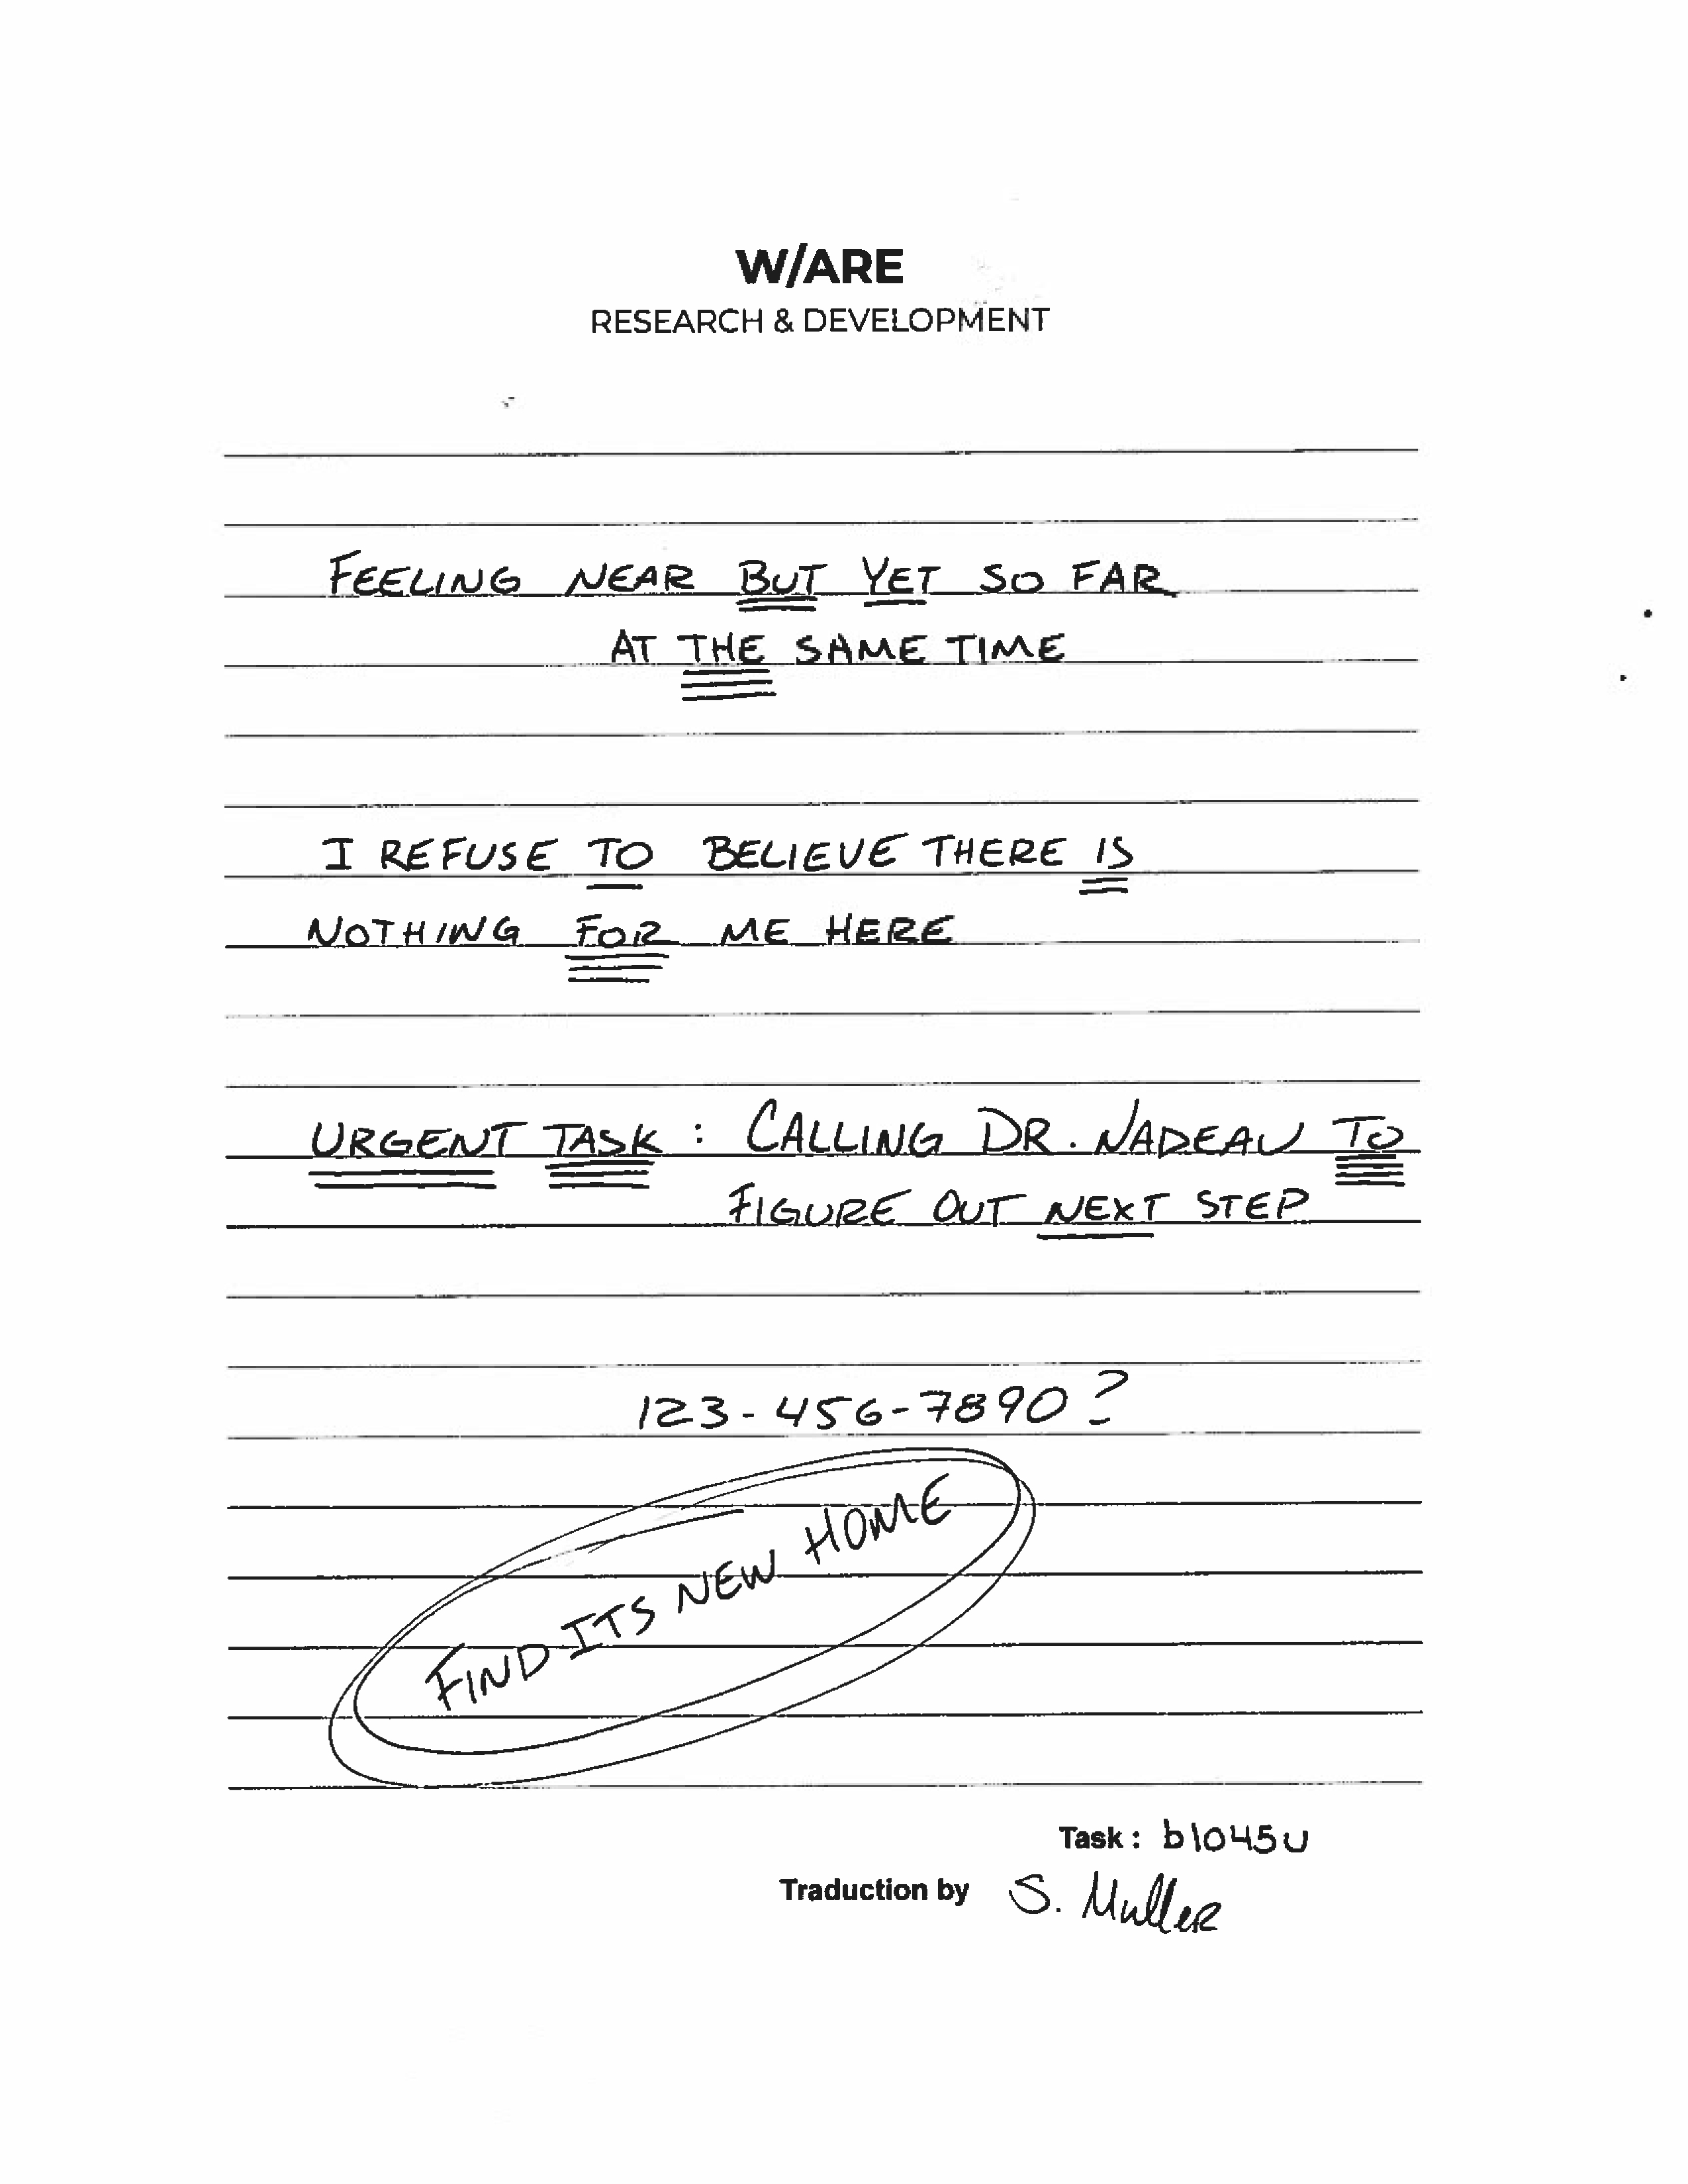 W/ARE
RESEARCH & DEVELOPMENT
FEELING NEAR BUT YET SO FAR
AT THE SAME TIME
I REFUSE TO BELIEVE THERE IS
NOTHING FOR ME HERE
URGENT TASK : CALLING DR. NADEAU TO
FIGURE OUT NEXT STEP
123-456-7890?
FIND ITS NEW HOME
Task : b1045u
Traduction by S. Muller